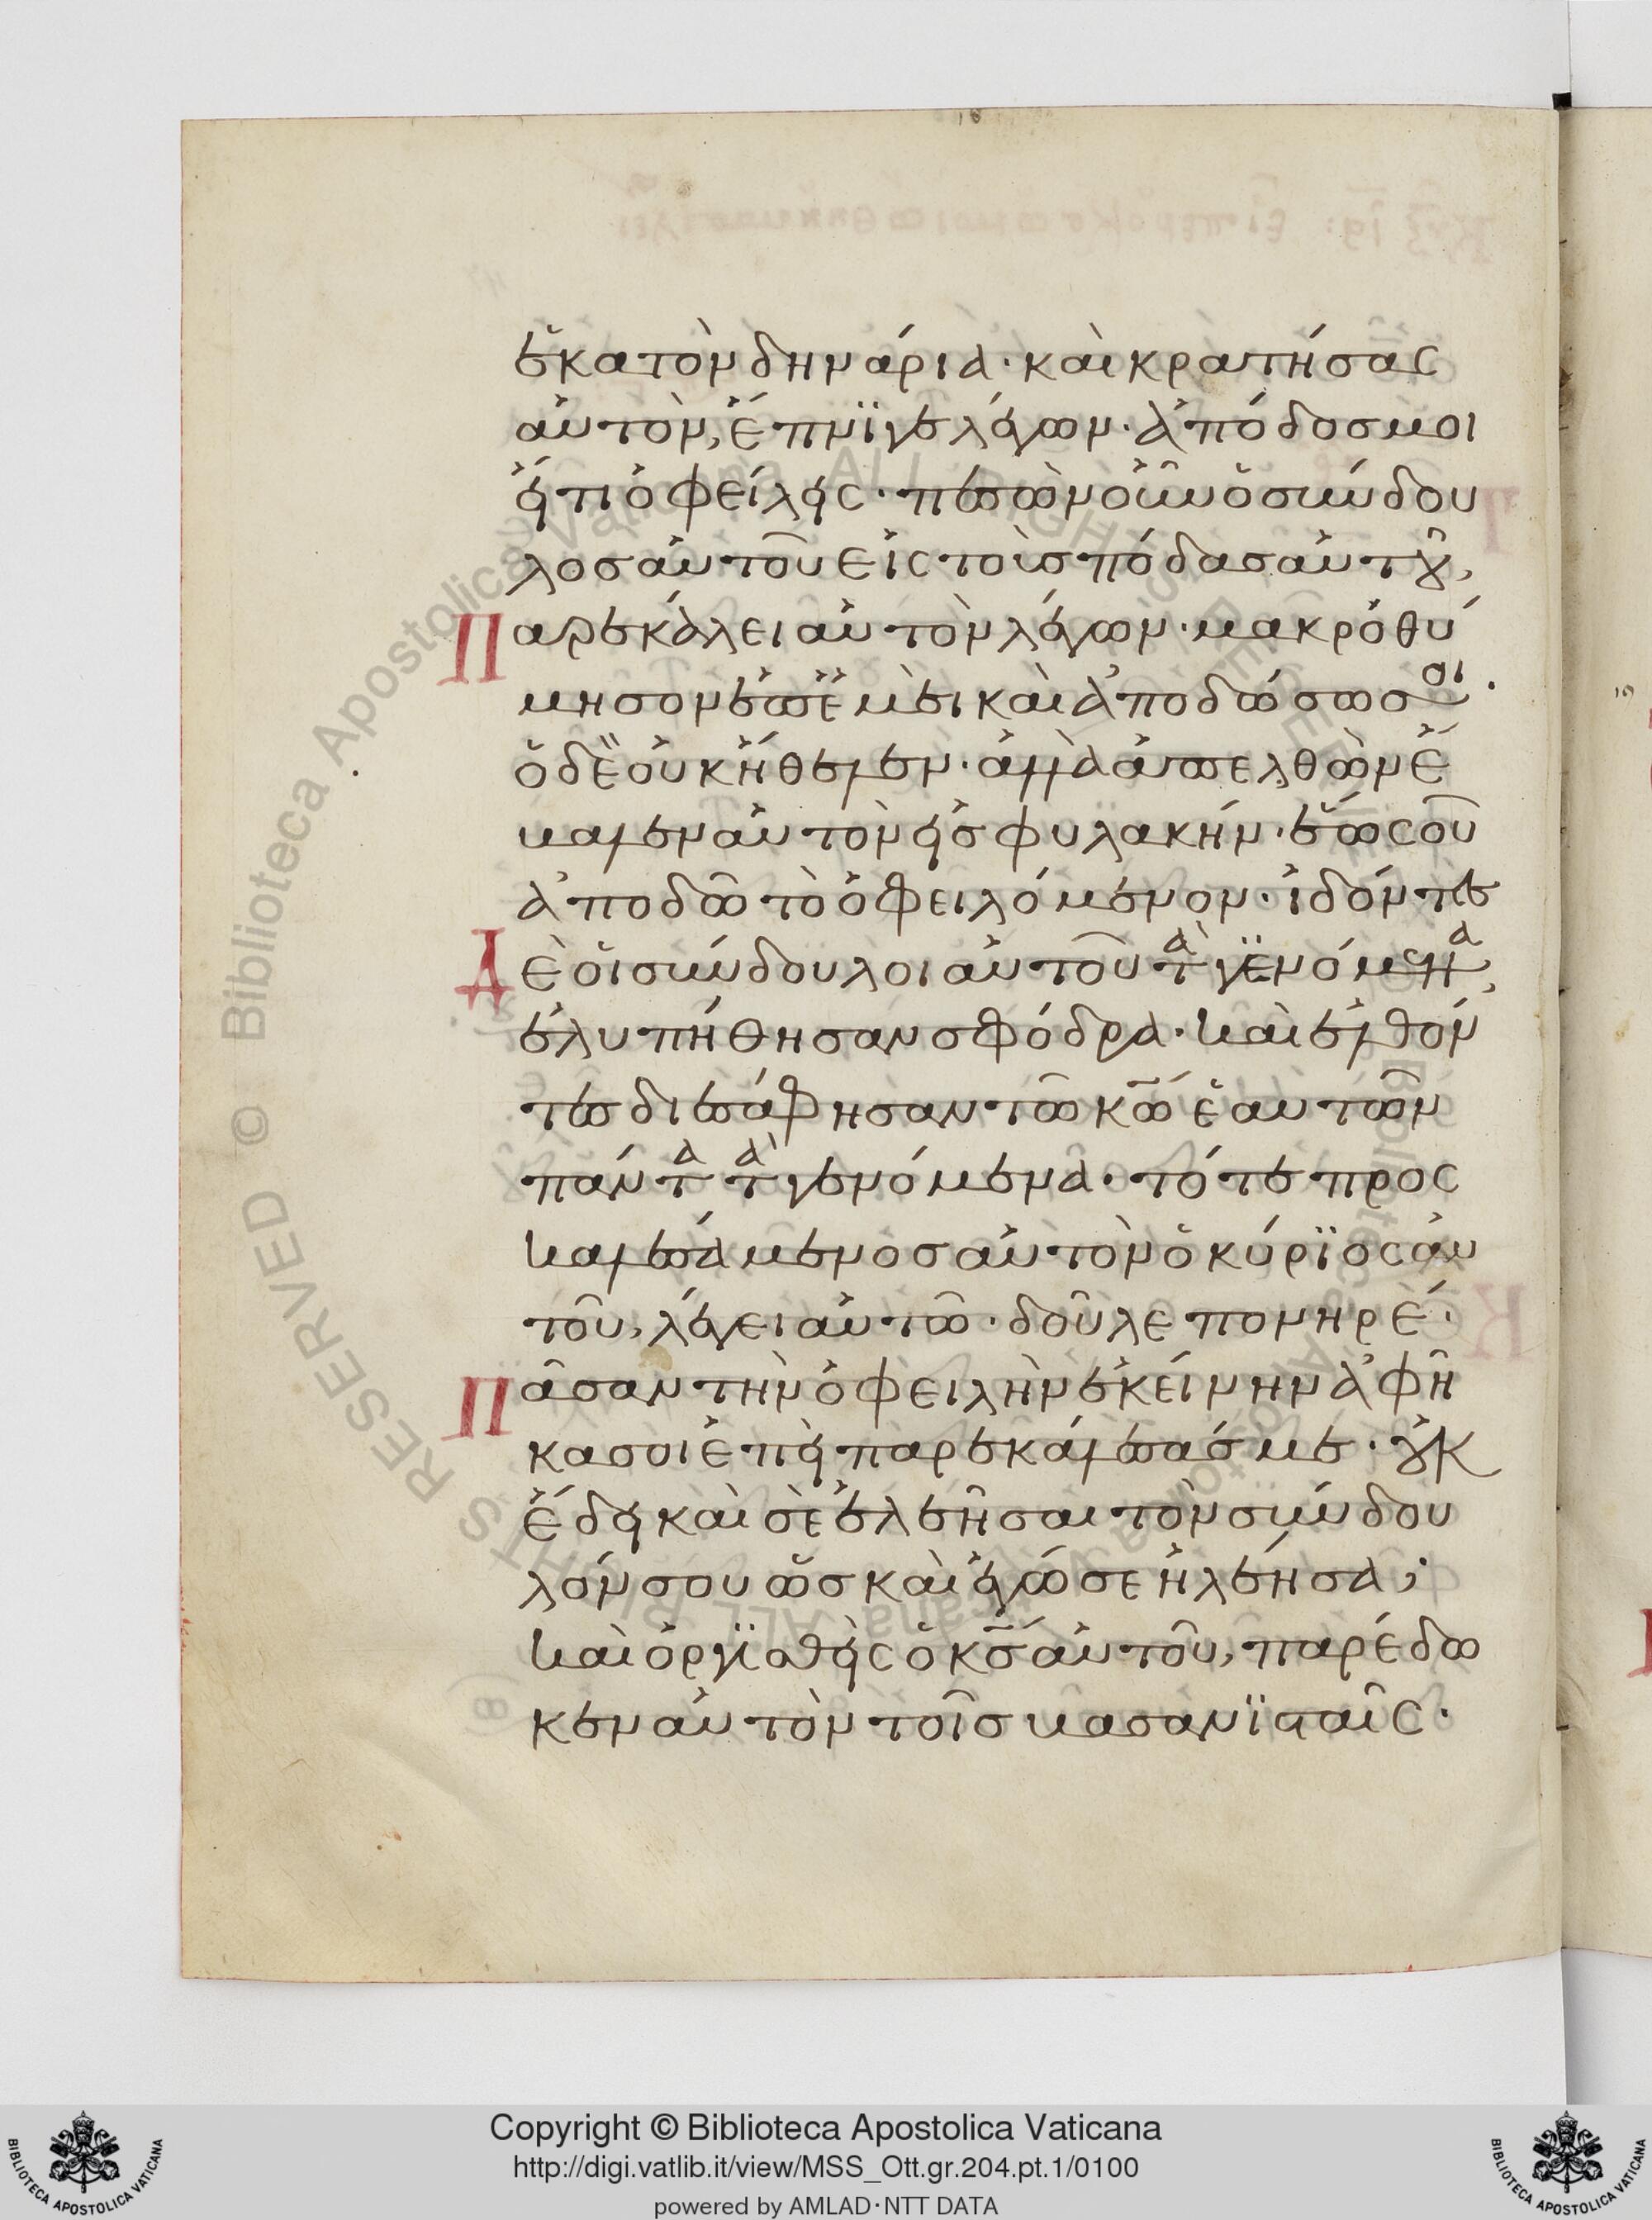 ἑκατὸν δηνάρια· καὶ κρατήσας
αὐτὸν, ἔπνϊγε λέγων· ἀπόδοσ μοι
εἴ τι ὀφείλεις· πεσὼν οὖν ὁ σύνδου
λοσ αὐτοῦ εἰς τοὺσ πόδασ αὐτοῦ,
Παρεκάλει αὐτὸν λέγων· μακροθύ
μησον ἐπ' ἐμὲ καὶ ἀποδώσω σοι·
ὁ δὲ οὐκ ἤθελεν· ἀλλὰ ἀπελθὼν ἔ
βαλεν αὐτὸν εἰσ φυλακήν· ἕως οὗ
ἀποδῶ τὸ ὀφειλόμενον· ἰδόντες
Δὲ οἱ σύνδουλοι αὐτοῦ τὰ γενόμενα,
ἐλυπήθησαν σφόδρα· καὶ ἐλθόν
τες διεσάφησαν τῶ κω ἑαυτῶν
πάντα τὰ γενόμενα· τότε προς
καλεσάμενοσ αὐτὸν ὁ κύρϊος αὐ
τοῦ, λέγει αὐτῶ· δοῦλε πονηρέ·
Πᾶσαν τὴν ὀφειλὴν ἐκείνην ἀφῆ
κα σοι ἐπεὶ παρεκάλεσάσ με· οὐκ
ἔδει καὶ σὲ ἐλεῆσαι τὸν σύνδου
λόν σου ὡσ καὶ ἐγώ σε ἠλέησα;
καὶ ὀργϊσθεὶς ὁ κσ αὐτοῦ, παρέδω
κεν αὐτὸν τοῖσ βασανϊσταῖς·
Copyright © Biblioteca Apostolica Vaticana
http://digi.vatlib.it/view/MSS_Ott.gr.204.pt.1/0100
powered by AMLAD·NTT DATA